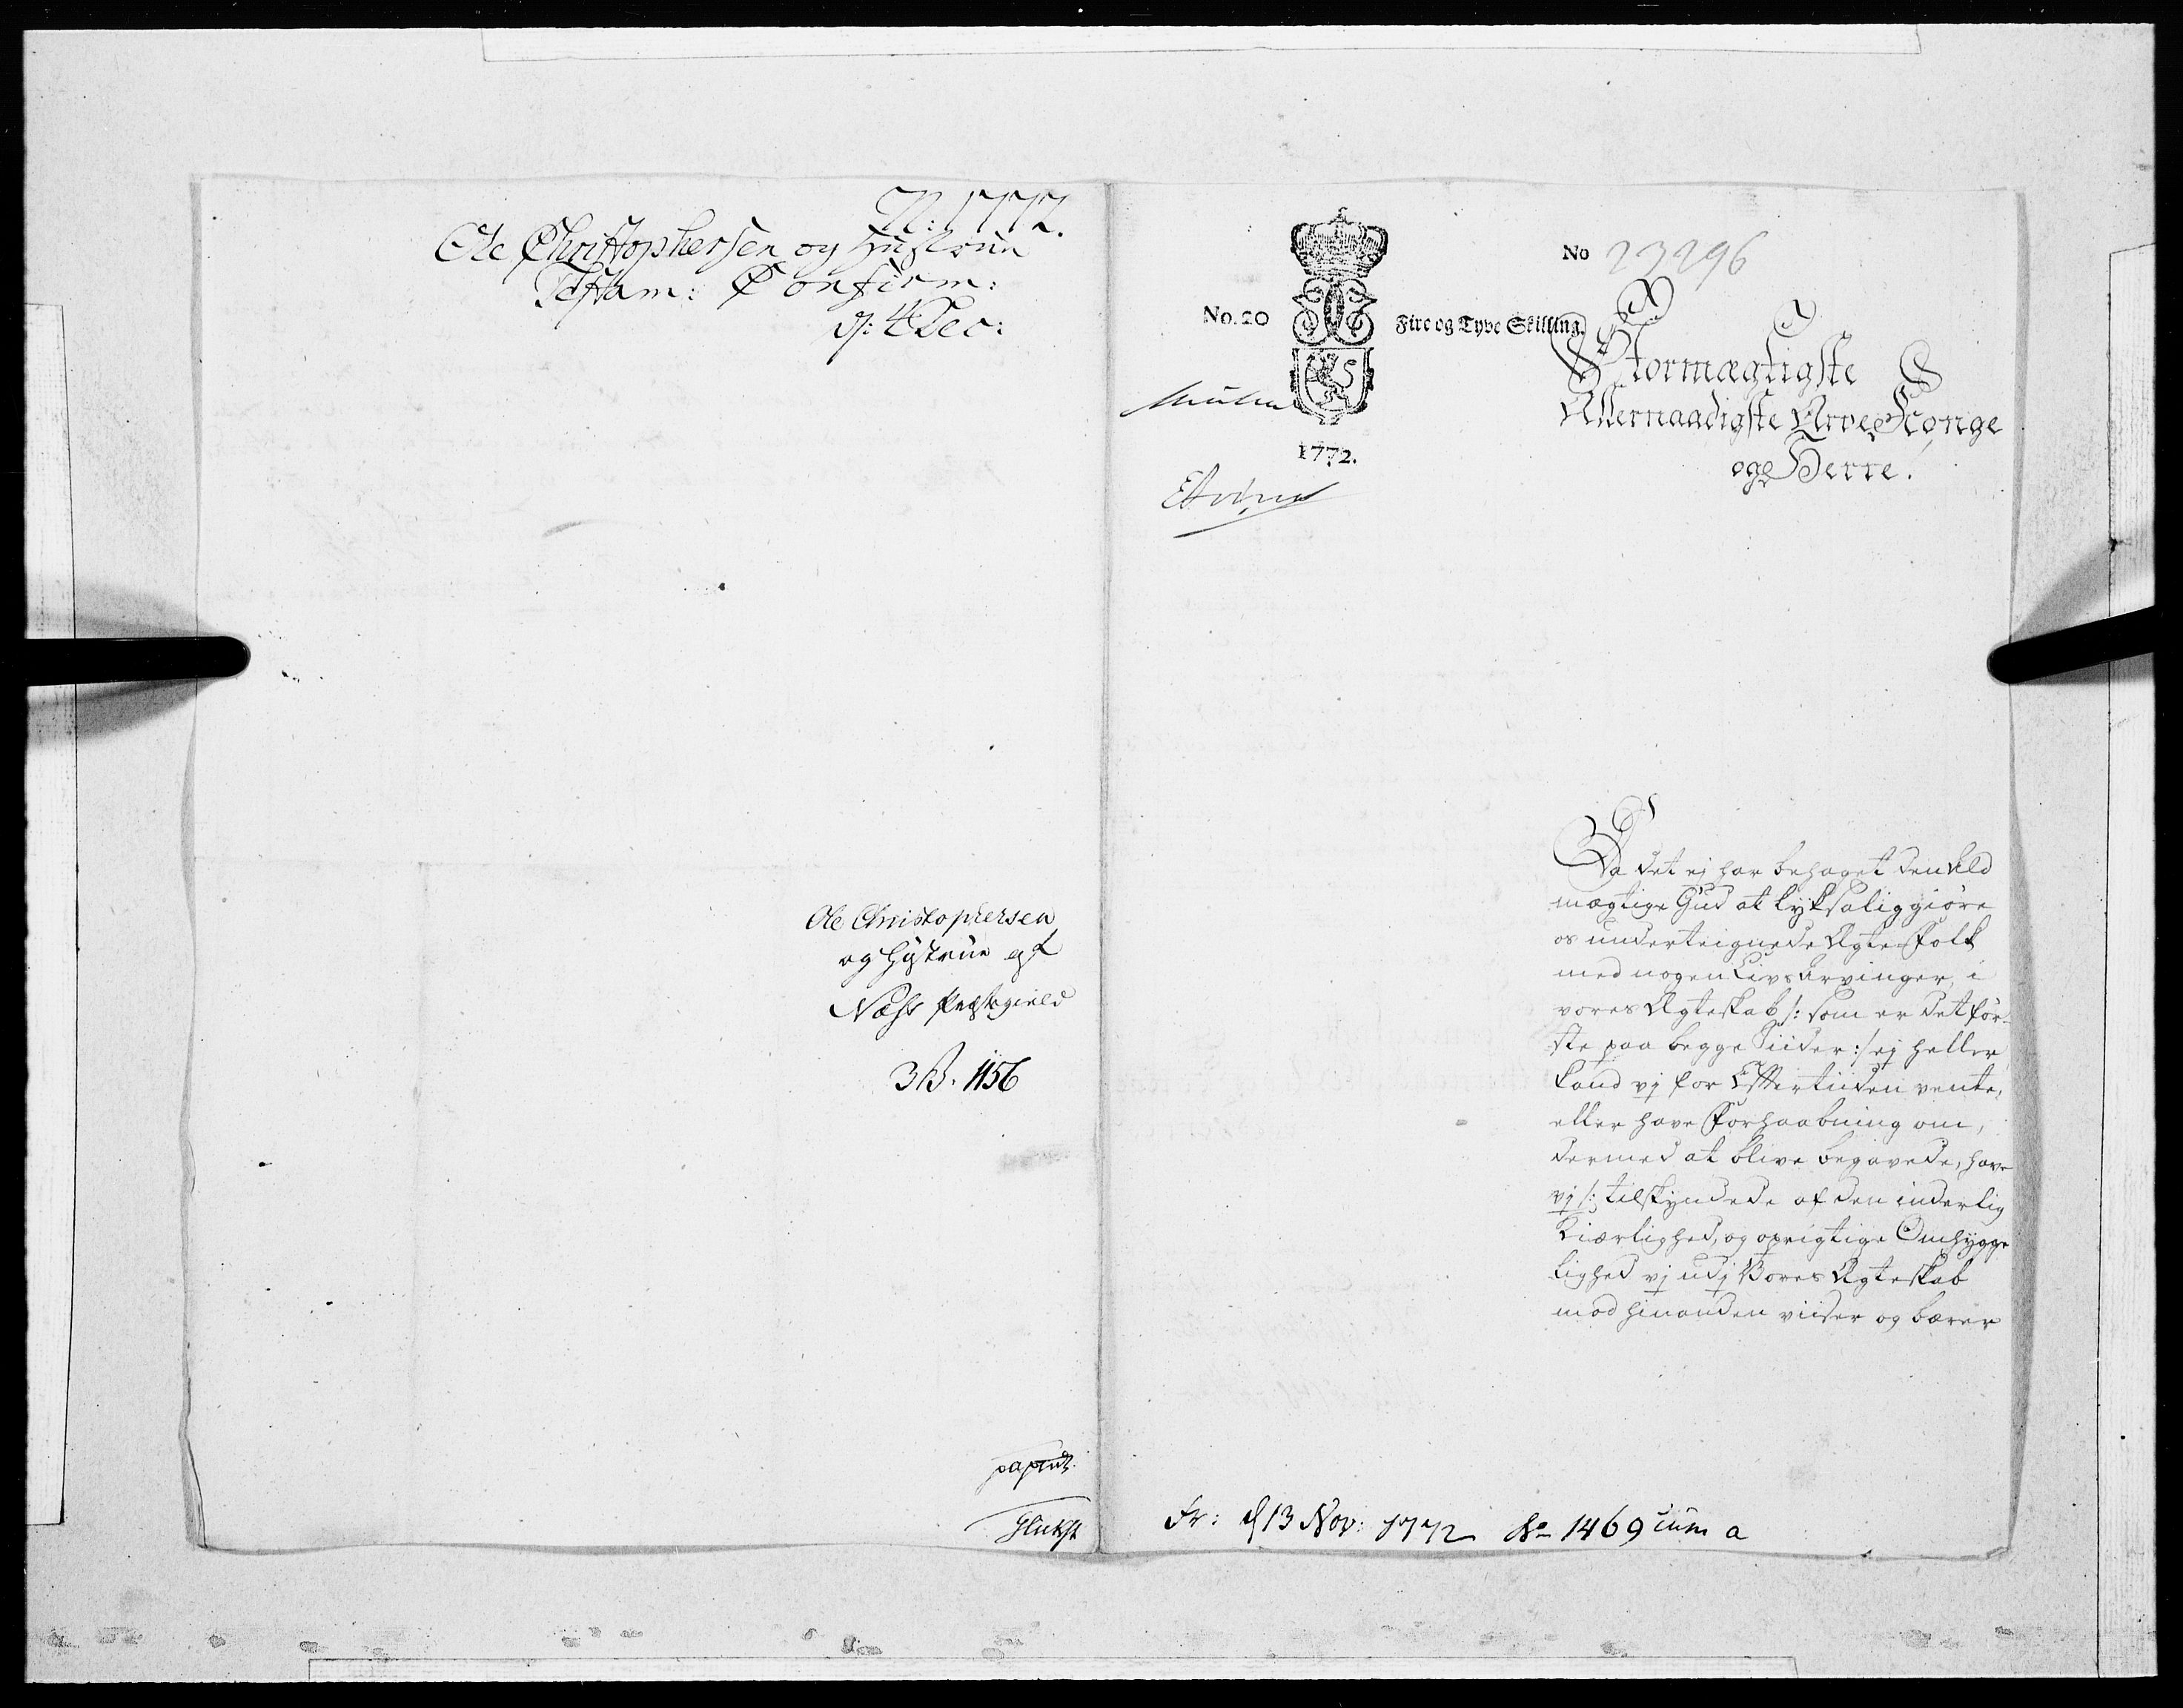 N: 1772.
Ole Christophersen og Hustrue
Testam: Confirm:
d: 4 Dec:
Ole Christophersen
og Hustrue af
Næss Præstegield
3 B. 1156
No 23296
No. 20
Fire og Tyve Skilling.
1772.
Stormægtigste
Allernaadigste Arve Konge
og Herre!
Da det ej har behaget den Ald
mægtige Gud at lyksaliggiöre
os underteignede Ægte-Folk
med nogen Livs Arvinger, i
vores Ægteskab /: som er det för-
ste paa begge Siider :/ ej heller
kand vj for Eftertiiden vente,
eller have Forhaabning om,
dermed at blive begavede, have
vj /: tilskyndede af den inderlig
Kiærlighed, og oprigtige Omhygge
lighed vj udj Vores Ægteskab
mod hinanden viiser og bærer
Fr: d 13 Nov: 1772 No 1469 cum a